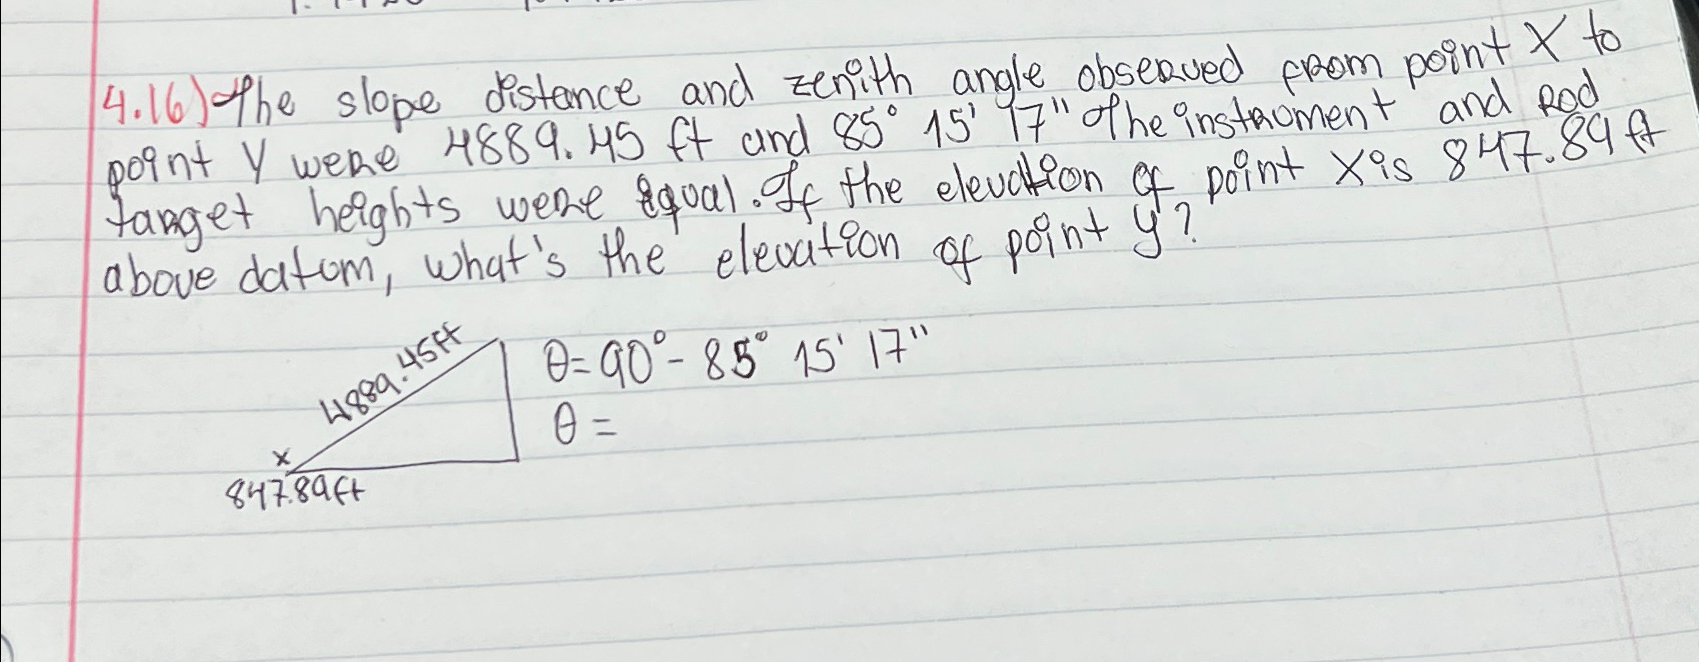 4.16) The slope distance and zenith angle observed from point X to
point Y were 4889.45 ft and 85° 15' 17" The instrument and Rod
target heights were equal. If the elevation of point X is 847.89 ft
above datum, what's the elevation of point y?
4889.45ft
θ = 90° - 85° 15' 17"
θ =
x
847.89ft